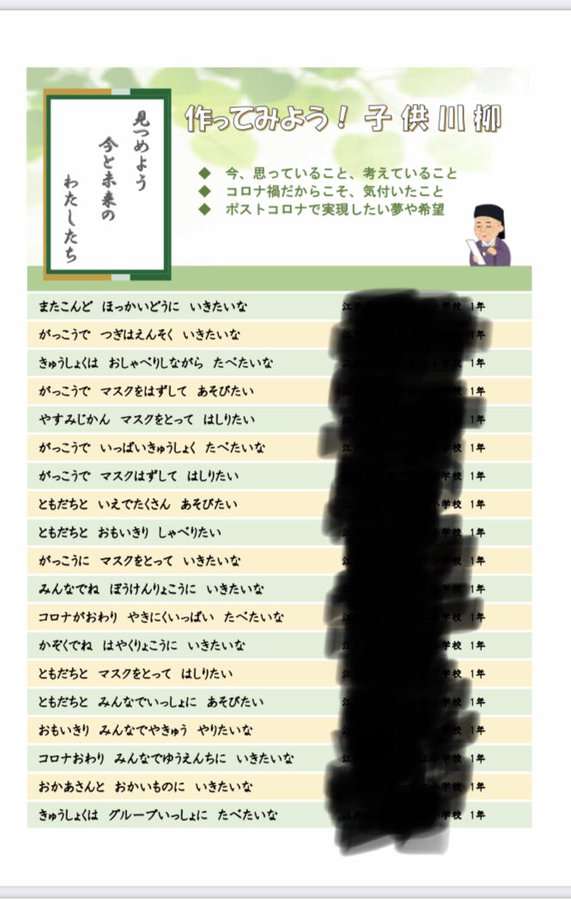 見つめよう
今と未来の
わたしたち
作ってみよう！子供川柳
◆ 今、思っていること、考えていること
◆ コロナ禍だからこそ、気付いたこと
◆ ポストコロナで実現したい夢や希望
またこんど ほっかいどうに いきたいな 江 学校 1年
がっこうで つぎはえんそく いきたいな 校 1年
きゅうしょくは おしゃべりしながら たべたいな 1年
がっこうで マスクをはずして あそびたい 校 1年
やすみじかん マスクをとって はしりたい 1年
がっこうで いっぱいきゅうしょく たべたいな 校 1年
がっこうで マスクはずして はしりたい 学校 1年
ともだちと いえでたくさん あそびたい 学校 1年
ともだちと おもいきり しゃべりたい 学校 1年
がっこうに マスクをとって いきたいな 校 1年
みんなでね ぼうけんりょこうに いきたいな 学校 1年
コロナがおわり やきにくいっぱい たべたいな 学校 1年
かぞくでね はやくりょこうに いきたいな 学校 1年
ともだちと マスクをとって はしりたい 学校 1年
ともだちと みんなでいっしょに あそびたい 学校 1年
おもいきり みんなでやきゅう やりたいな 学校 1年
コロナおわり みんなでゆうえんちに いきたいな 学校 1年
おかあさんと おかいものに いきたいな 学校 1年
きゅうしょくは グループいっしょに たべたいな 学校 1年